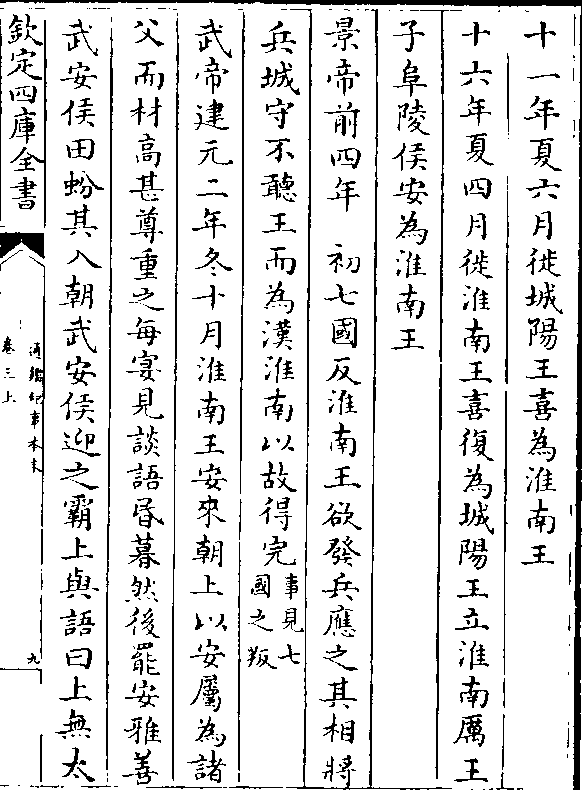 十一年夏六月徙城陽王喜為淮南王
十六年夏四月徙淮南王喜復為城陽王立淮南厲王
子阜陵侯安為淮南王
景帝前四年　初七國反淮南王欲發兵應之其相將
兵城守不聽王而為漢淮南以故得完事見七
國之叛
武帝建元二年冬十月淮南王安來朝上以安屬為諸
父而材高甚尊重之每宴見談語昏暮然後罷安雅善
武安侯田蚡其入朝武安侯迎之霸上與語曰上無太
欽定四庫全書
通鑑紀事本末
卷三上
九